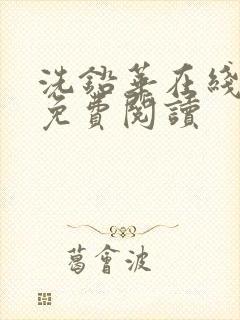 洗鉛華在綫
免費閱讀
葛會波